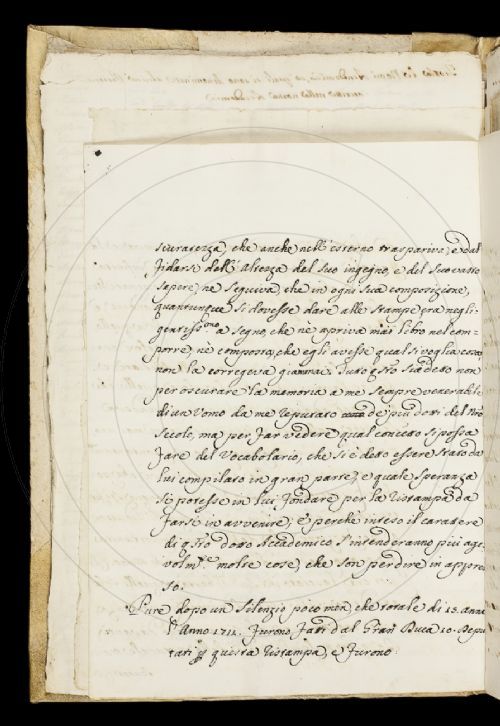 sicurazza, che anche nell' esterno traspariva, e dal
fidarsi dell' altezza del suo ingegno, e del suo vasto
sapere, ne seguiva, che in ogni sua composizione,
quantunque si dovesse dare alle stampe, era negli-
gentiss.mo a segno, che nè apriva mai libro nel com-
porre, nè composto, che egli avesse qual si voglia cosa
non la correggeva giammai. Tutto q.sto sia detto non
per oscurare la memoria a me sempre venerabile
di un Uomo da me reputato de' più dotti del n.ro
secolo, ma per far vedere qual concetto si possa
fare del Vocabolario, che si è detto essere stato da
lui compilato in gran parte, e quale speranza
si potesse in lui fondare per la ristampa da
farsi in avvenire; e perchè inteso il carattere
di q.sto dotto Accademico s'intenderanno più age-
volm.te molte cose, che son per dire in appres-
so.
Pure dopo un silenzio poco men, che totale di 15. anni
l' Anno 1711. furono fatti dal Gran Duca 10. Depu-
tati p questa ristampa, e furono